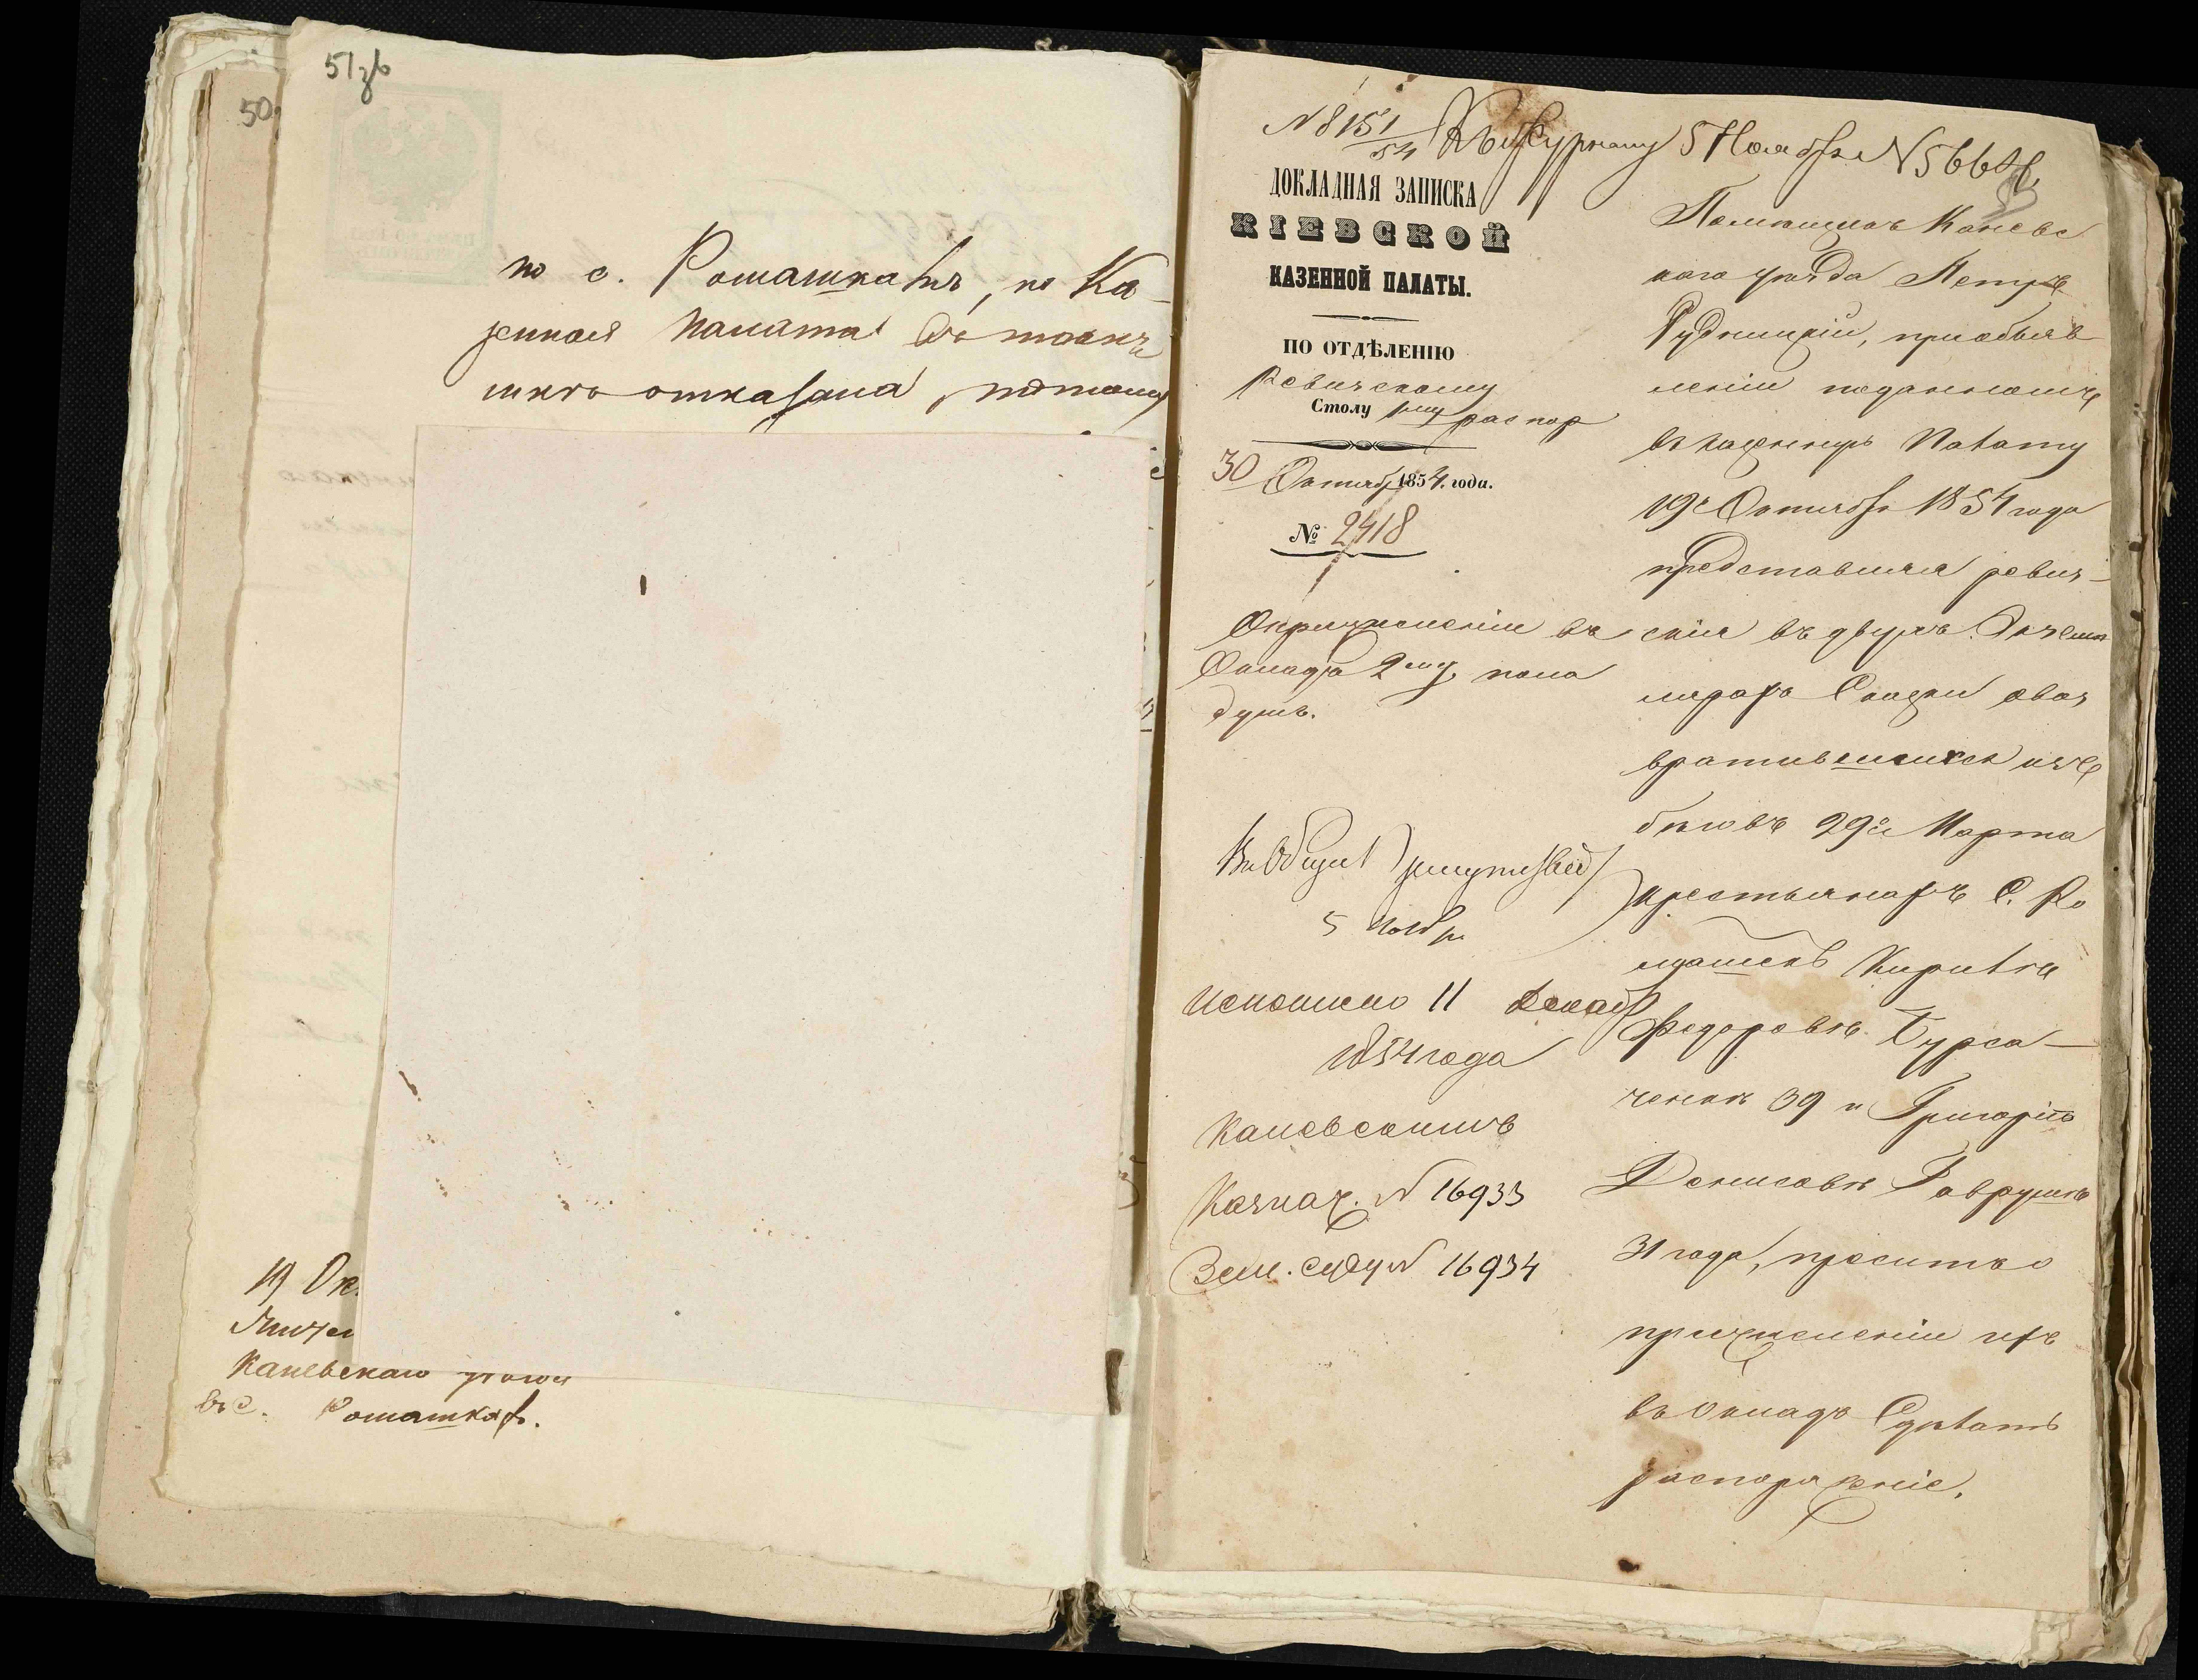 51зв
50
по с. Ромашкахъ, но Ка-
зенная Палата въ томъ
мнѣ отказала, потому
19 Ок
Каневскаго уѣзда
въ с. Ромашкахъ.
N 8151/54 Къ Журналу 5 Ноября N 5664.
ДОКЛАДНАЯ ЗАПИСКА
КІЕВСКОЙ
КАЗЕННОЙ ПАЛАТЫ.
ПО ОТДѢЛЕНІЮ
Ревизскому
Столу 1му распор
30 Октября 1854. года.
№ 2418
О причисленіи въ
Окладъ 2му пола
душъ.
5 Ноябр
Исполнено 11 Декабр
1854 года
Каневскимъ
Казнач. N 16933
Зем. суду N 16934
Помѣщикъ Каневс
каго уѣзда Петръ
Рудницкій, при объяв-
леніи поданномъ
въ Казенную Палату
19го Октября 1854 года
представляя ревиз-
скія въ двухъ Экзем
лярахъ Сказки о воз
вратившихся изъ
бѣговъ 29го Марта
крестьянахъ С. Ро
машекъ Кирилѣ
Федоровѣ Бурса-
ченкѣ 39 и Григоріѣ
Денисовѣ Гаврушкѣ
31 года, проситъ о
причисленіи ихъ
въ Окладъ Сдѣлать
распоряженіе.